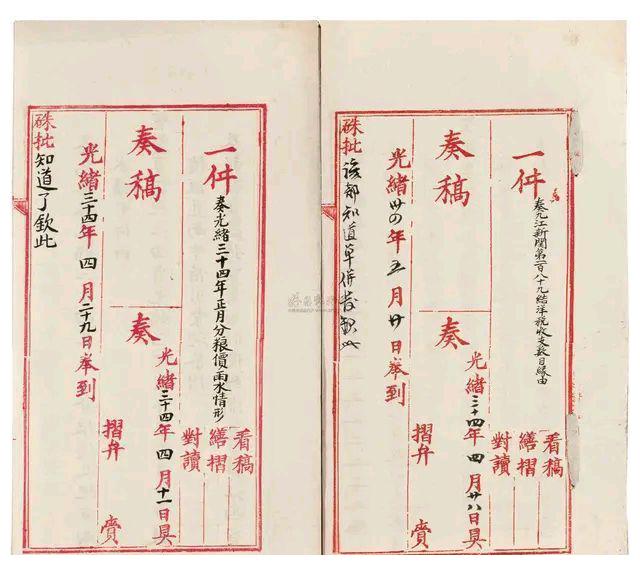 一件 奏九江新關第一百八十九結洋稅收支數目緣由
看稿
繕摺
對讀
奏稿
奏
光緒三十四年四月廿八日具
摺弁 賫
光緒卅四年五月廿日奉到
硃批該部知道單併發欽此
一件 奏光緒三十四年正月分粮價雨水情形
看稿
繕摺
對讀
奏稿
奏
光緒三十四年四月十一日具
摺弁 賫
光緒三十四年四月二十九日奉到
硃批知道了欽此